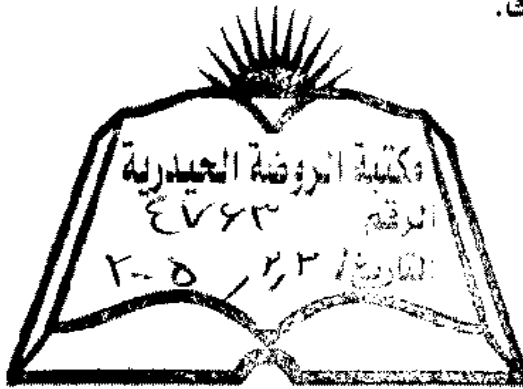 مكتبة الروضة الحيدرية
الرقم ٤٧٦٣
التاريخ / ٢٫٣ ٢٠٠٥